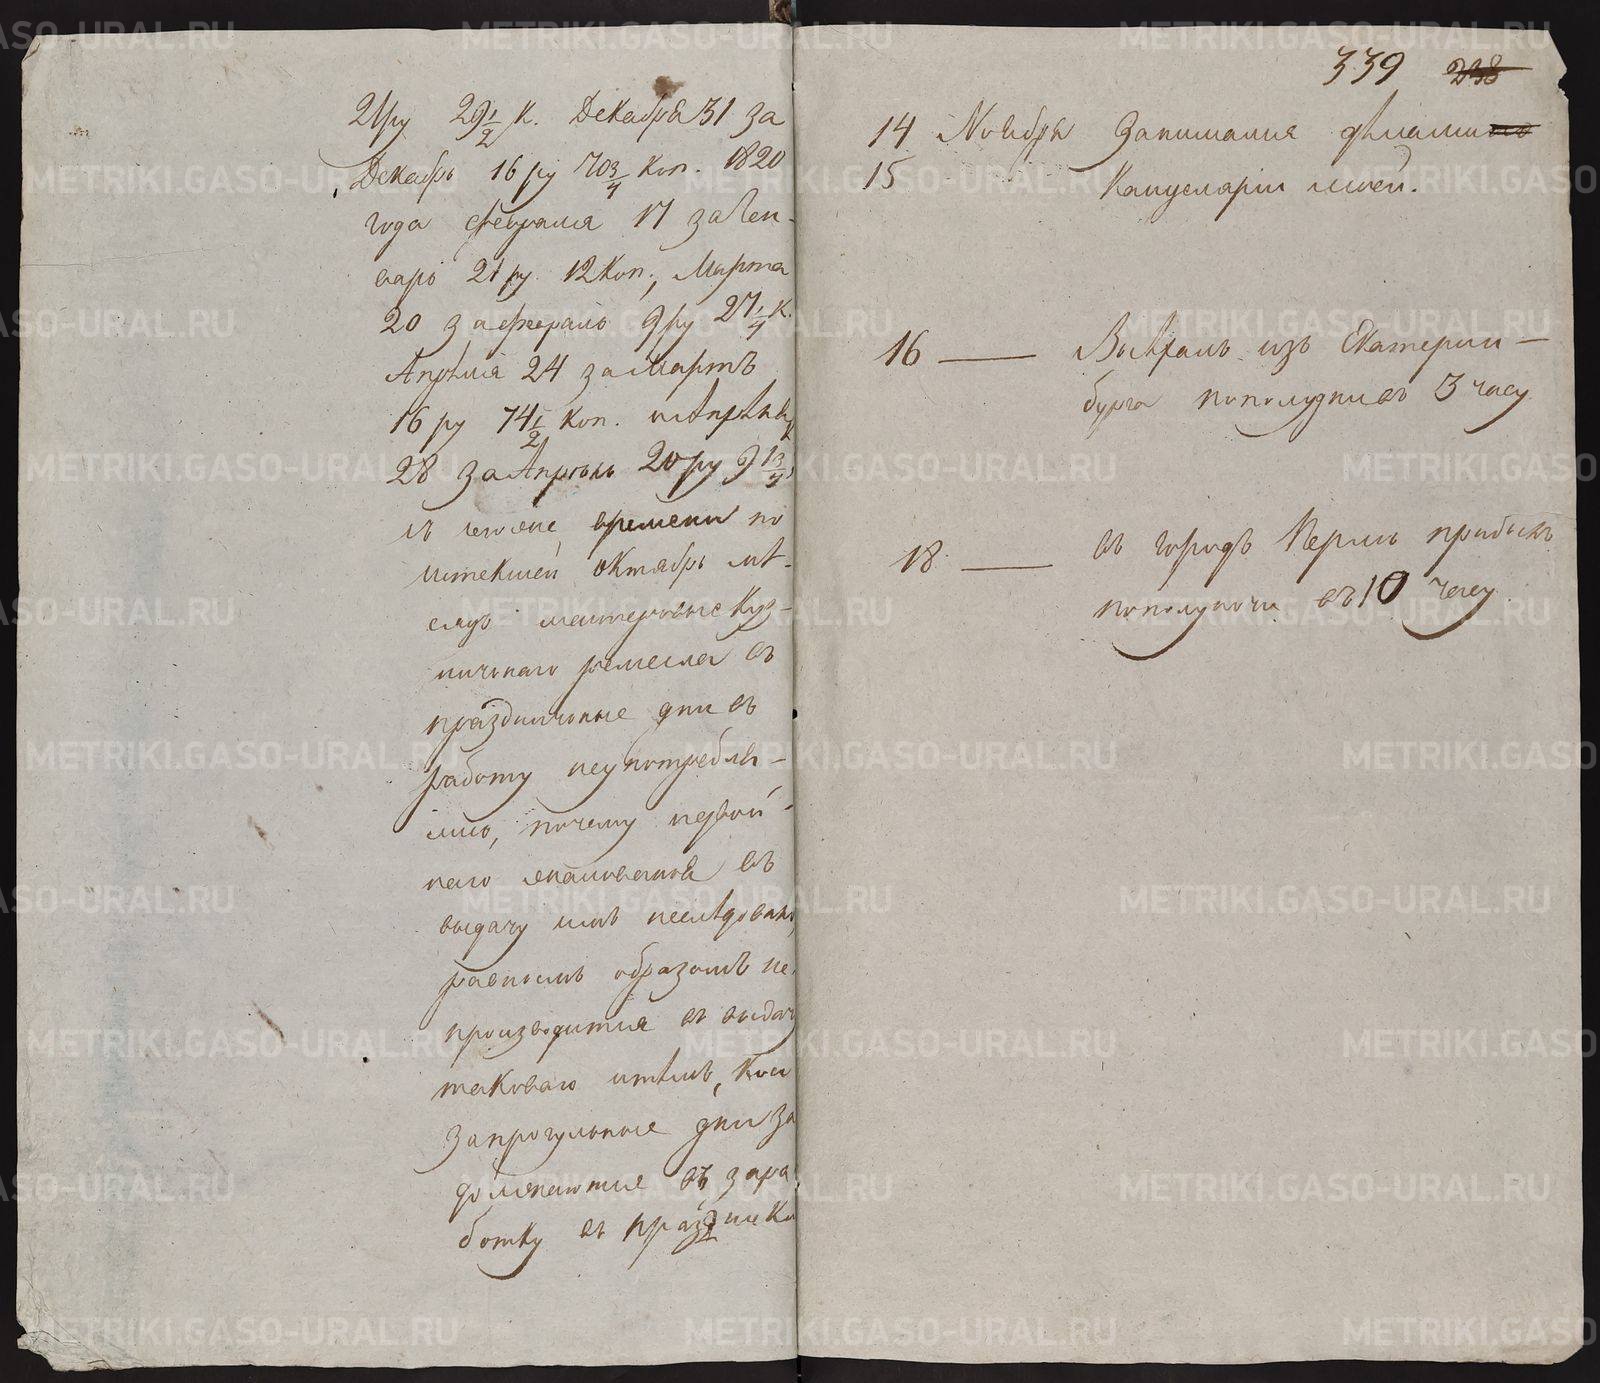 21 ру 29 1/2 к. Декабря 31 за
Декабрь 16 ру 70 3/4 коп. 1820
года февраля 17 за Ген-
варь 21 ру. 12 коп., Марта
20 за февраль 9 ру 27 1/4 к.
Апреля 24 за Мартъ
16 ру 74 1/2 коп.
28 за Апрель 20 ру 91 3/4
въ течение времени по
истекшей октябрь мѣ-
сяцъ мастеровые Куз-
ничнаго ремесла въ
праздничные дни въ
работу неупотребля-
лись, почему первой-
наго въ
выдачу имъ неследовало,
равнымъ образомъ не
производится въ выдачу
таковаго и тѣмъ, кои
запрогульные дни за
должаются въ зара
ботку въ праздники
339 238
14 Ноября Занимался дѣлами
15 Канцеляріи моей.
16 — Выѣхалъ изъ Екатерин-
бурга пополудни въ 3 часу
18 — въ городъ Пермь прибылъ
пополуночи въ 10 часу
METRIKI.GASO-URAL.RU